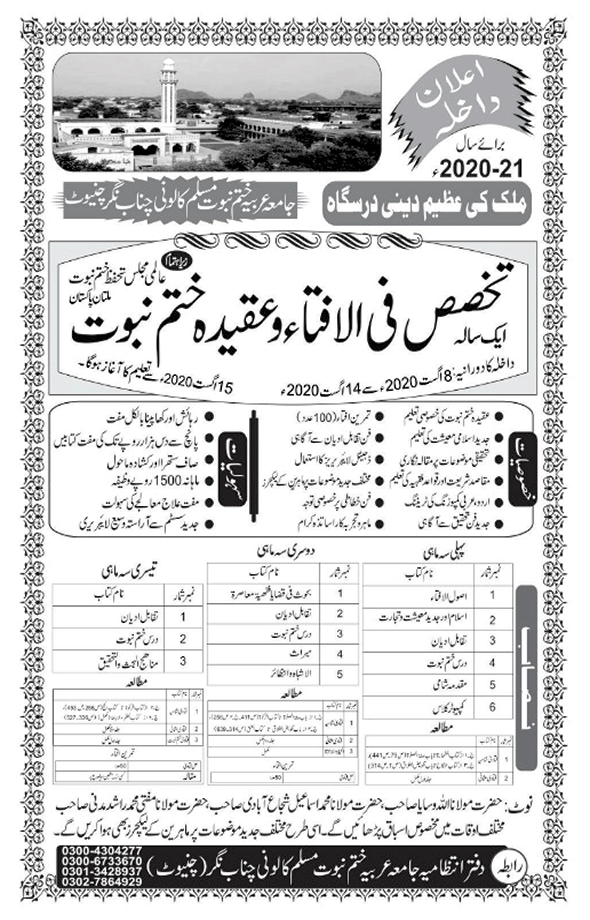 اعلان
داخلہ
برائے سال
2020-21ء
ملک کی عظیم دینی درسگاہ
جامعہ عربیہ ختم نبوت مسلم کالونی چناب نگر چنیوٹ
زیر اہتمام
عالمی مجلس تحفظ ختم نبوت
ملتان پاکستان
ایک سالہ
تخصص فی الافتاء و عقیدہ ختم نبوت
داخلہ کا دورانیہ: 8 اگست 2020ء سے 14 اگست 2020ء
15 اگست 2020ء سے تعلیم کا آغاز ہوگا۔
خصوصیات
عقیدہ ختم نبوت کی خصوصی تعلیم
جدید اسلامی معیشت کی تعلیم
تحقیقی موضوعات پر مقالہ نگاری
مقاصد شریعت اور قواعد فقہیہ کی تعلیم
اردو، عربی کمپوزنگ کی ٹریننگ
جدید فن تحقیق سے آگاہی
تمرین افتاء (100 عدد)
فن تقابل ادیان سے آگاہی
ڈیجیٹل لائبریریز کا استعمال
مختلف جدید موضوعات پر ماہرین کے لیکچرز
فن خطاطی پر خصوصی توجہ
ماہر و تجربہ کار اساتذہ کرام
سہولیات
رہائش اور کھانا پینا بالکل مفت
پانچ سے دس ہزار روپے تک کی مفت کتابیں
صاف ستھرا اور کشادہ ماحول
ماہانہ 1500 روپے وظیفہ
مفت علاج معالجے کی سہولت
جدید سسٹم سے آراستہ وسیع لائبریری
نصاب
پہلی سہ ماہی
نمبر شمار نام کتاب
1 اصول الافتاء
2 اسلام اور جدید معیشت و تجارت
3 تقابل ادیان
4 درس ختم نبوت
5 مقدمہ شامی
6 کمپیوٹر کلاس
مطالعہ
دوسری سہ ماہی
نمبر شمار نام کتاب
1 بحوث فی قضایا فقہیۃ معاصرۃ
2 تقابل ادیان
3 درس ختم نبوت
4 میراث
5 الاشباہ والنظائر
مطالعہ
تیسری سہ ماہی
نمبر شمار نام کتاب
1 تقابل ادیان
2 درس ختم نبوت
3 مناھج البحث والتحقیق
مطالعہ
نوٹ: حضرت مولانا اللہ وسایا صاحب، حضرت مولانا محمد اسماعیل شجاع آبادی صاحب، حضرت مولانا مفتی محمد راشد مدنی صاحب
مختلف اوقات میں مخصوص اسباق پڑھائیں گے۔ اسی طرح مختلف جدید موضوعات پر ماہرین کے لیکچرز بھی ہوا کریں گے۔
رابطہ
دفتر انتظامیہ جامعہ عربیہ ختم نبوت مسلم کالونی چناب نگر (چنیوٹ)
0300-4304277
0300-6733670
0301-3428937
0302-7864929